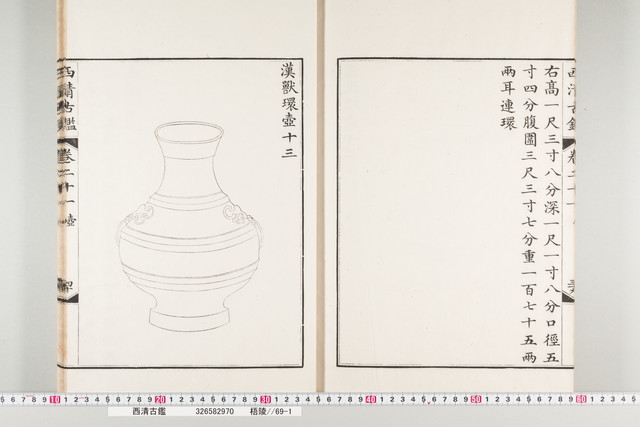 右髙一尺三寸八分深一尺一寸八分口徑五
寸四分腹圍三尺三寸七分重一百七十五兩
兩耳連環
漢獸環壺十三
西清古鑑
卷二十一 壺
西清古鑑 326582970 梧陵//69-1